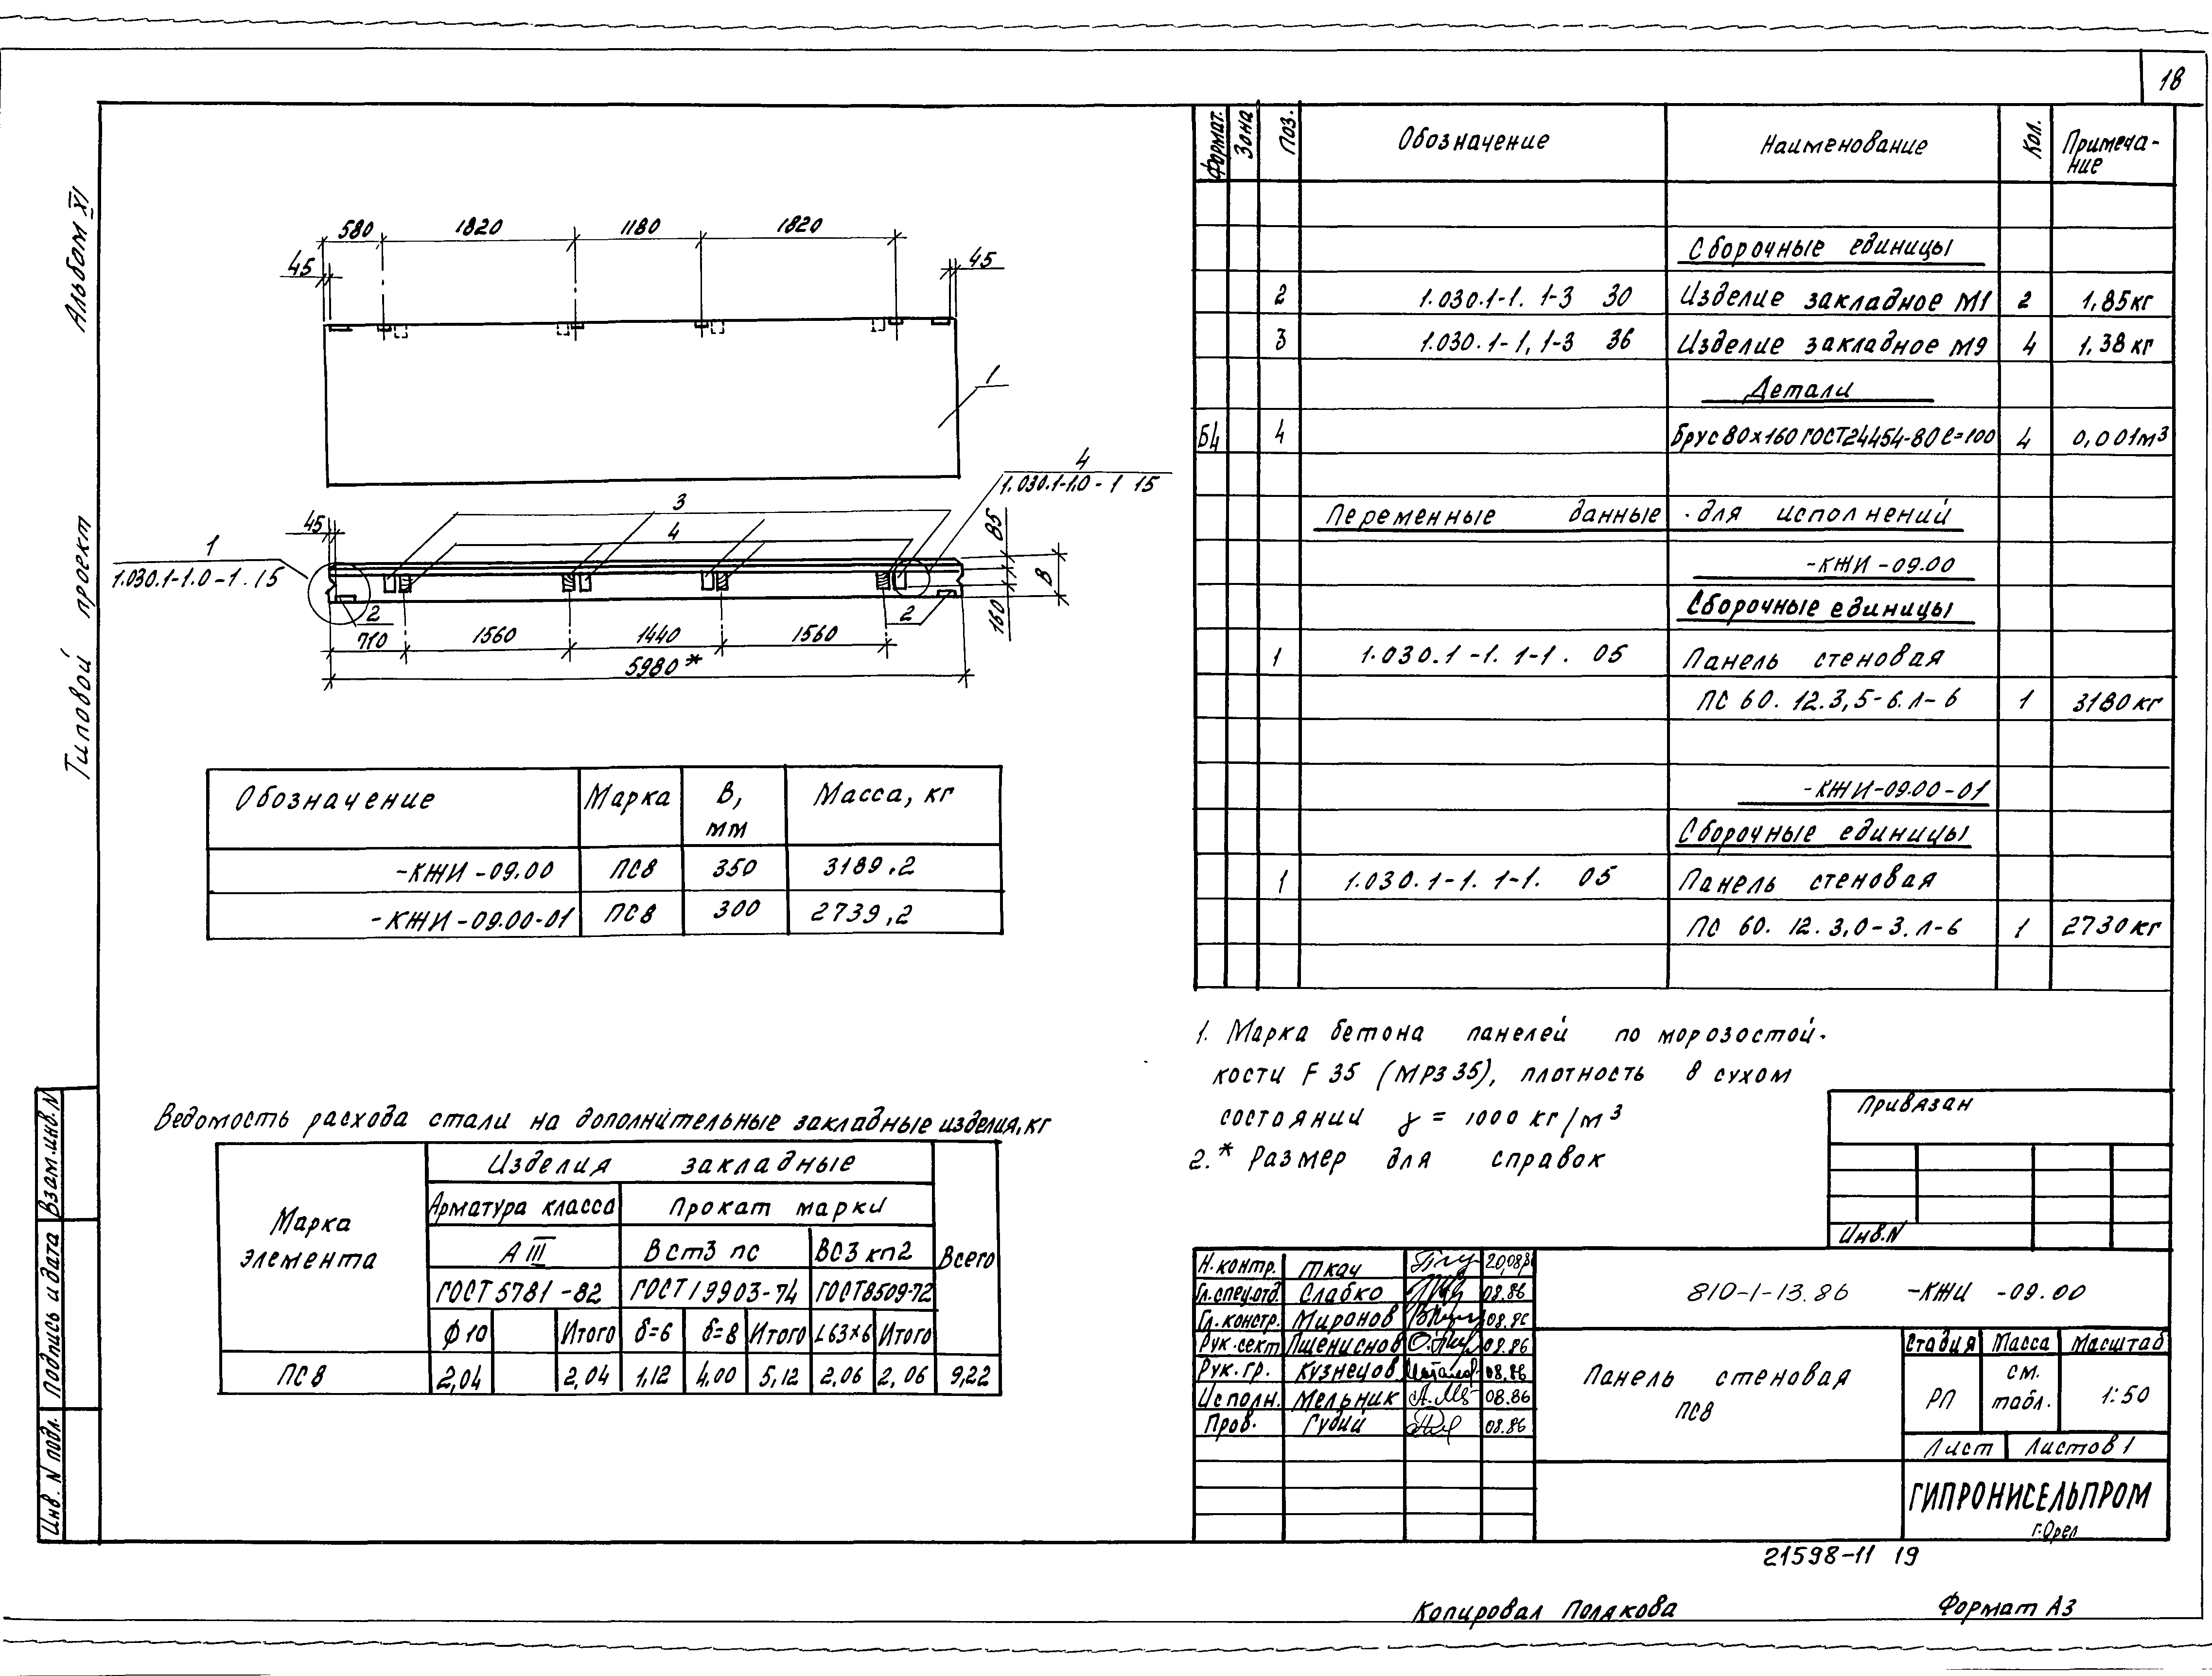 18
Альбом XI
Типовой проект
580 1820 1180 1820
45 45
1
4
1.030.1-1.0-1 15
3
4
45
1
1.030.1-1.0-1.15
85
В
160
2 2
710 1560 1440 1560
5980*
Обозначение Марка В, мм Масса, кг
-КЖИ-09.00 ПС8 350 3189,2
-КЖИ-09.00-01 ПС8 300 2739,2
Ведомость расхода стали на дополнительные закладные изделия, кг
Марка элемента
Изделия закладные
Арматура класса Прокат марки
А III В ст3 пс ВС3 кп2 Всего
ГОСТ 5781-82 ГОСТ 19903-74 ГОСТ 8509-72
Ф10 Итого δ=6 δ=8 Итого L63×6 Итого
ПС8 2,04 2,04 1,12 4,00 5,12 2,06 2,06 9,22
Формат. Зона Поз. Обозначение Наименование Кол. Примеча-
ние
Сборочные единицы
2 1.030.1-1. 1-3 30 Изделие закладное М1 2 1,85кг
3 1.030.1-1, 1-3 36 Изделие закладное М9 4 1,38кг
Детали
Б4 4 Брус 80×160 ГОСТ24454-80 ℓ=100 4 0,001м³
Переменные данные для исполнений
-КЖИ-09.00
Сборочные единицы
1 1.030.1-1. 1-1. 05 Панель стеновая
ПС 60. 12.3,5-6.Л-6 1 3180кг
-КЖИ-09.00-01
Сборочные единицы
1 1.030.1-1. 1-1. 05 Панель стеновая
ПС 60. 12. 3,0-3.Л-6 1 2730кг
1. Марка бетона панелей по морозостой-
кости F 35 (МРЗ 35), плотность в сухом
состоянии γ = 1000 кг/м³
2.* Размер для справок
Привязан
Инв.N
Н.контр. Ткач 20.08.86
Гл.спец.отд. Слабко 08.86
Гл.констр. Миронов 08.86
Рук.сект Пшениснов 08.86
Рук.гр. Кузнецов 08.86
Исполн. Мельник 08.86
Пров. Губий 08.86
810-1-13.86 -КЖИ -09.00
Панель стеновая
ПС8
Стадия Масса Масштаб
РП см. табл. 1:50
Лист Листов 1
ГИПРОНИСЕЛЬПРОМ
г.Орел
Взам.инв.N
Подпись и дата
Инв. N подл.
21598-11 19
Копировал Полякова Формат А3